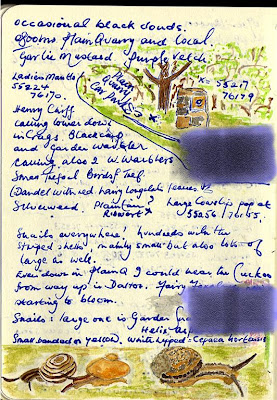 occasional black clouds.
Blooms Plain Quarry and local.
Garlic Mustard purple vetch.
Ladies Mantle at
55224
76170.
Plain
Quarry
Car Park
x = 55217
76179
Henry Chiff
calling lower down
in Crags. Blackcap
and Garden warbler
calling also 2 W Warblers
Trefoil
Silverweed Plantain?
Ribwort x
Large Cowslip pop at
55256 / 76155.
Snails everywhere! hundreds with the
striped shells, mainly small but also lots of
large as well.
Even down in Plain Q I could hear the Cuckoo
from way up in Dalton. Fairy
starting to bloom.
Snails: large one is Garden
Helix
Small banded on yellow. White lipped = Cepaea hortensis